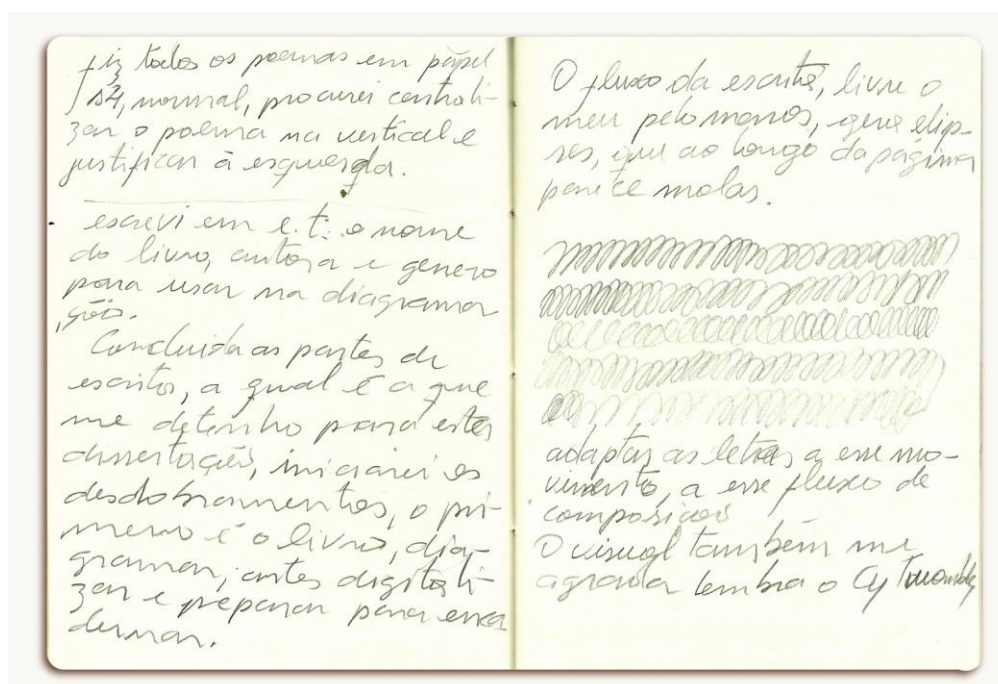 fiz todos os poemas em papel
A4, normal, procurei centrali-
zar o poema na vertical e
justificar à esquerda.
escrevi em e.t. o nome
do livro, autora e genero
para usar na diagrama
ção.
Concluida as partes de
escritos, a qual é a que
me detenho para esta
dissertação, iniciarei os
desdobramentos, o pri-
meiro é o livro, dia-
gramar, antes digitali-
zar e preparar para enca
dernar.
O fluxo da escrita, livre o
meu pelo menos, gera elip-
ses, que ao longo da página
parece molas.
adaptar as letras a esse mo-
vimento, a esse fluxo de
composição
O visual também me
agrada lembra o Cy Twombly